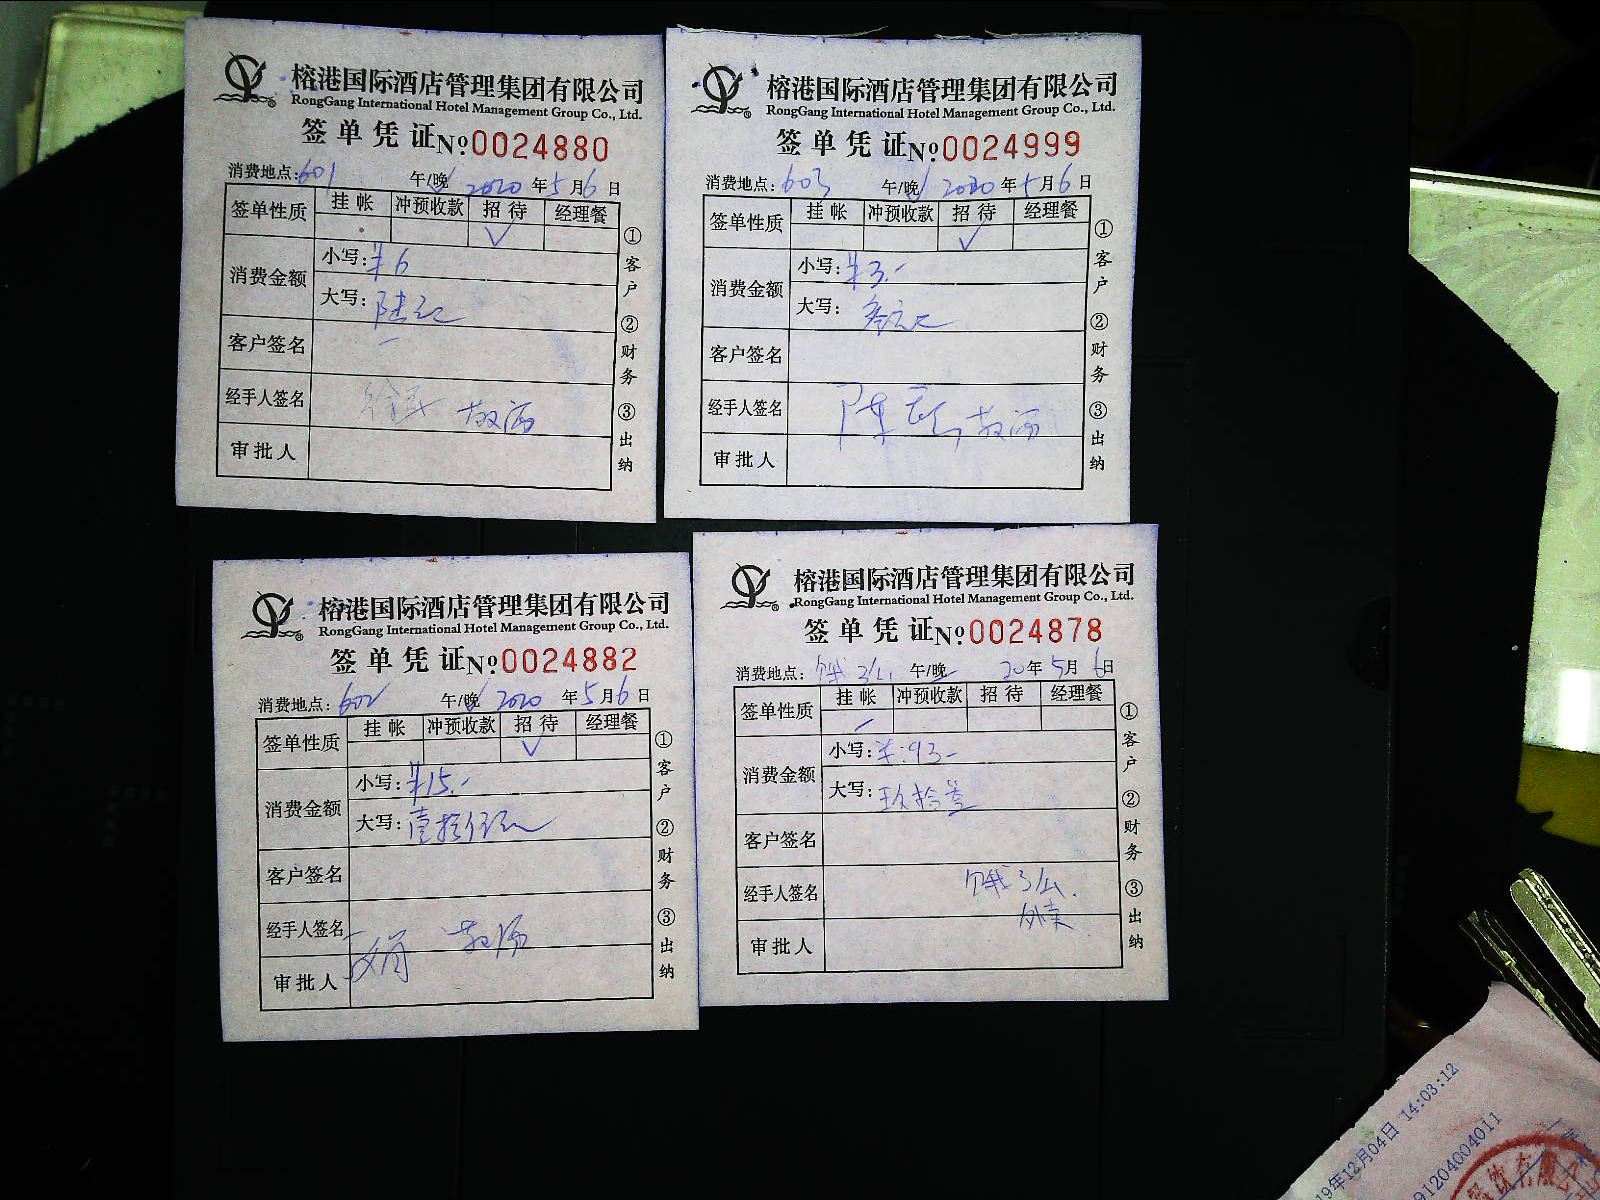 榕港国际酒店管理集团有限公司
RongGang International Hotel Management Group Co., Ltd.
签单凭证 №0024880
消费地点:601 午/晚 2020年5月6日
签单性质 挂帐 冲预收款 招待 经理餐
✓
消费金额 小写:¥6
大写:陆元
客户签名
经手人签名
审批人
①客户 ②财务 ③出纳
榕港国际酒店管理集团有限公司
RongGang International Hotel Management Group Co., Ltd.
签单凭证 №0024999
消费地点:603 午/晚 2020年5月6日
签单性质 挂帐 冲预收款 招待 经理餐
✓
消费金额 小写:¥3.-
大写:叁元
客户签名
经手人签名 陈
审批人
①客户 ②财务 ③出纳
榕港国际酒店管理集团有限公司
RongGang International Hotel Management Group Co., Ltd.
签单凭证 №0024882
消费地点:602 午/晚 2020年5月6日
签单性质 挂帐 冲预收款 招待 经理餐
✓
消费金额 小写:¥15.-
大写:壹拾伍元
客户签名
经手人签名
审批人
①客户 ②财务 ③出纳
榕港国际酒店管理集团有限公司
RongGang International Hotel Management Group Co., Ltd.
签单凭证 №0024878
消费地点:饿了么 午/晚 20年5月6日
签单性质 挂帐 冲预收款 招待 经理餐
消费金额 小写:¥:93-
大写:玖拾叁
客户签名
经手人签名 饿了么.
外卖
审批人
①客户 ②财务 ③出纳
19年12月04日 14:03:12
91204004011
餐饮有限公